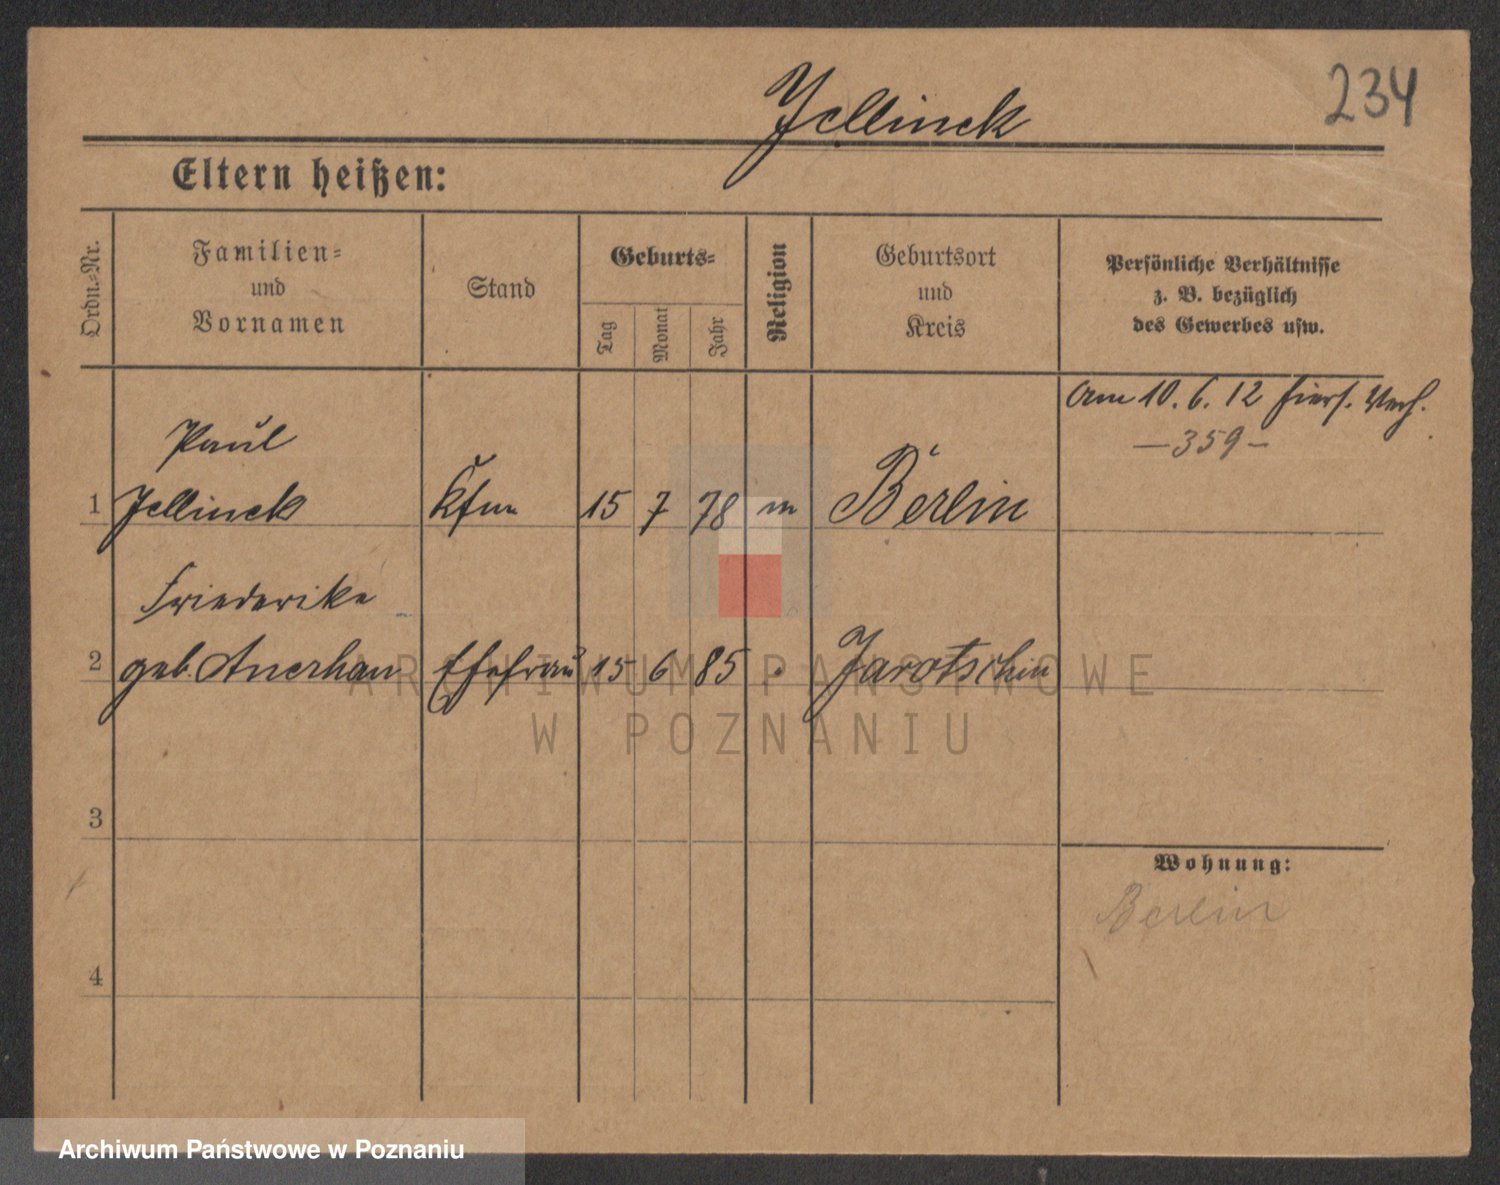 234
Jellinck
Eltern heißen:
Ordn.-Nr.
Familien-
und
Vornamen
Stand
Geburts-
Tag
Monat
Jahr
Religion
Geburtsort
und
Kreis
Persönliche Verhältnisse
z. B. bezüglich
des Gewerbes usw.
am 10. 6. 12 hiers. Verh.
— 359 —
Paul
1 Jellinck Kfm 15 7 78 m Berlin
Friederike
2 geb. Auerhan Ehefrau 15 6 85 " Jarotschin
ARCHIWUM PAŃSTWOWE
W POZNANIU
3
Wohnung:
Berlin
4
Archiwum Państwowe w Poznaniu